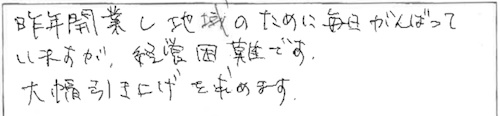 昨年開業し地域のために毎日がんばって
いますが、経営困難です。
大幅引き上げを求めます。